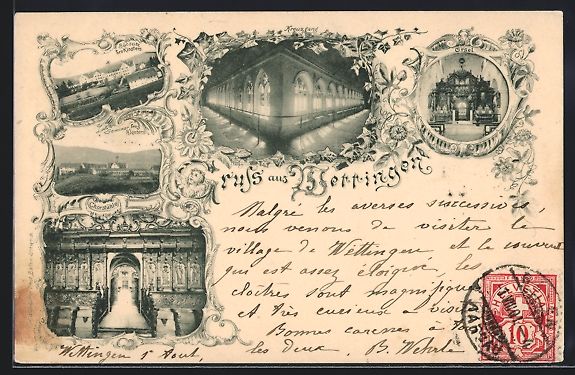 Kreuzgang
Orgel
Chorstühle
Gruss aus Wettingen
Malgré les averses successives,
nous venons de visiter le
village de Wettingen et le couvent
qui est assez éloigné, les
cloîtres sont magnifiques
et très curieux à visiter
Bonnes caresses à
les deux. B. Wehrle
Wettingen 1r Aout,
10